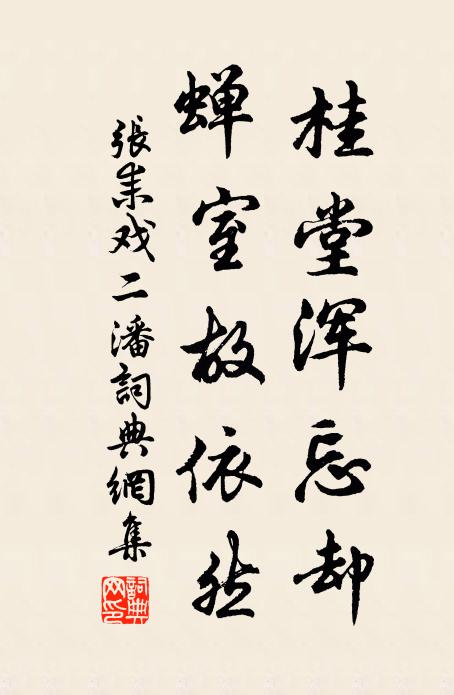 桂堂浑忘却
蝉室故依然
張耒戏二潘詞典網集
詞典网印